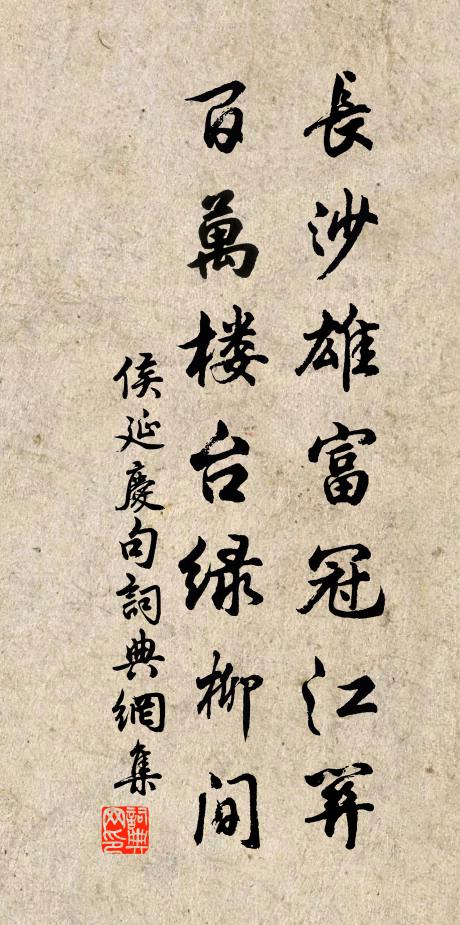 長沙雄富冠江
百萬楼台绿柳间
侯延慶句詞典網集
詞典
网印